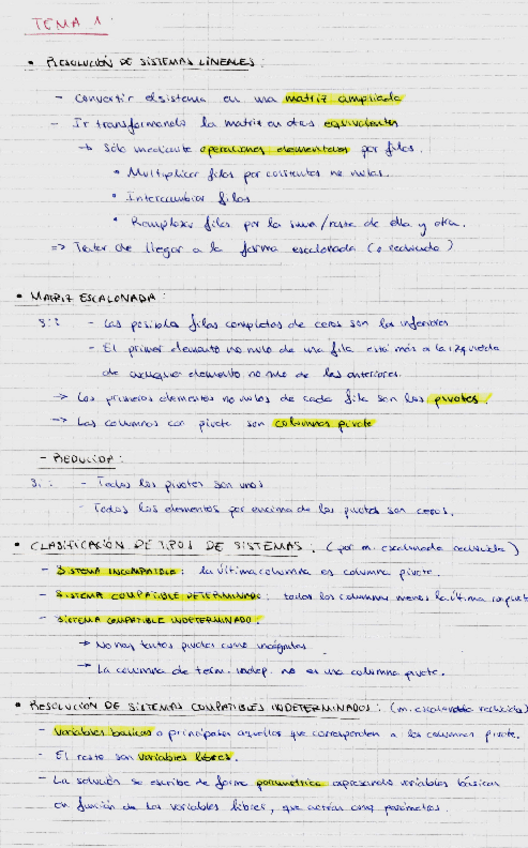 TEMA 1:
• RESOLUCIÓN DE SISTEMAS LINEALES:
- Convertir el sistema en una matriz ampliada
- Ir transformando la matriz en otras equivalentes
→ Sólo mediante operaciones elementales por filas.
• Multiplicar filas por constantes no nulas.
• Intercambiar filas
• Remplazar filas por la suma/resta de ella y otra.
=> Tratar de llegar a la forma escalonada (o reducida)
• MATRIZ ESCALONADA:
Si: - Las posibles filas completas de ceros son las inferiores
- El primer elemento no nulo de una fila está más a la izquierda
de cualquier elemento no nulo de las anteriores.
→ Los primeros elementos no nulos de cada fila son los pivotes.
→ Las columnas con pivote son columnas pivote
- REDUCIDA:
Si: - Todos los pivotes son unos
- Todos los elementos por encima de los pivotes son ceros.
• CLASIFICACIÓN DE TIPOS DE SISTEMAS: (por m. escalonada reducida)
- SISTEMA INCOMPATIBLE: la última columna es columna pivote.
- SISTEMA COMPATIBLE DETERMINADO: todas las columnas menos la última
- SISTEMA COMPATIBLE INDETERMINADO:
→ No hay tantos pivotes como incógnitas
→ La columna de term. indep. no es una columna pivote.
• RESOLUCIÓN DE SISTEMAS COMPATIBLES INDETERMINADOS: (m. escalonada reducida)
- Variables básicas o principales aquellas que corresponden a las columnas pivote.
- El resto son variables libres.
- La solución se escribe de forma paramétrica expresando variables básicas
en función de las variables libres, que actúan como parámetros.